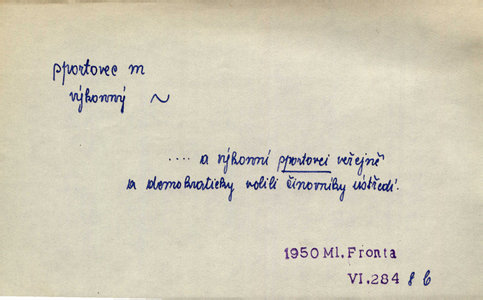 sportovec m
výkonný ~
.... a výkonní sportovci veřejně
a demokraticky volili činovníky ústředí.
1950 Ml. Fronta
VI.284 8 b